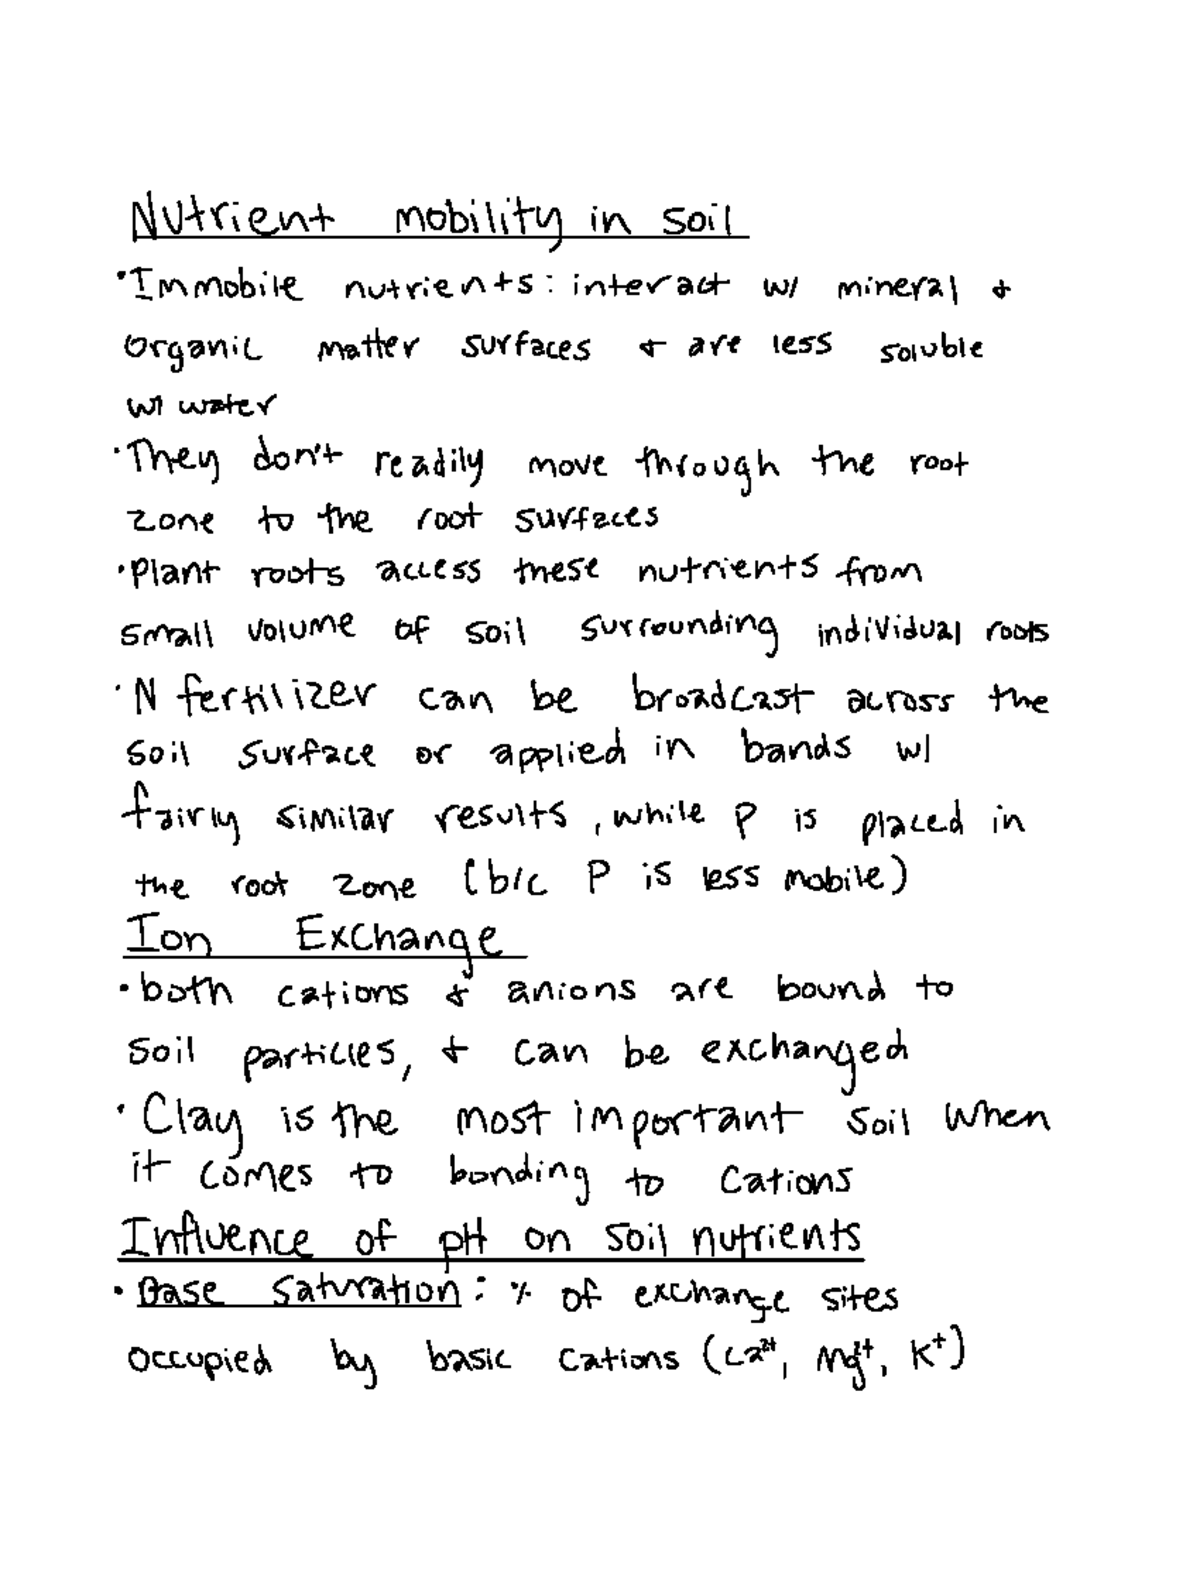 Nutrient mobility in soil
•Immobile nutrients: interact w/ mineral &
organic matter surfaces & are less soluble
w/ water
•They don't readily move through the root
zone to the root surfaces
•Plant roots access these nutrients from
small volume of soil surrounding individual roots
•N fertilizer can be broadcast across the
soil surface or applied in bands w/
fairly similar results, while P is placed in
the root zone (b/c P is less mobile)
Ion Exchange
•both cations & anions are bound to
soil particles, & can be exchanged
•Clay is the most important soil when
it comes to bonding to cations
Influence of pH on soil nutrients
•Base saturation: % of exchange sites
occupied by basic cations (Ca²⁺, Mg²⁺, K⁺)